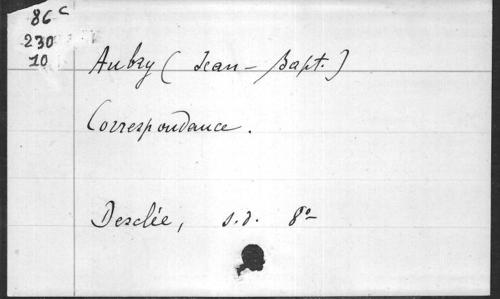 86 c
230
10
Aubry (Jean-Bapt.)
Correspondance.
Desclée, s.d. 8o